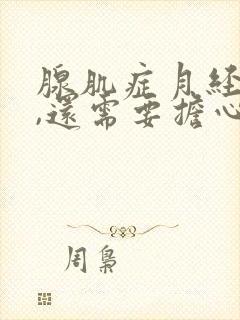 腺肌症月経
,還需要擔心
周梟